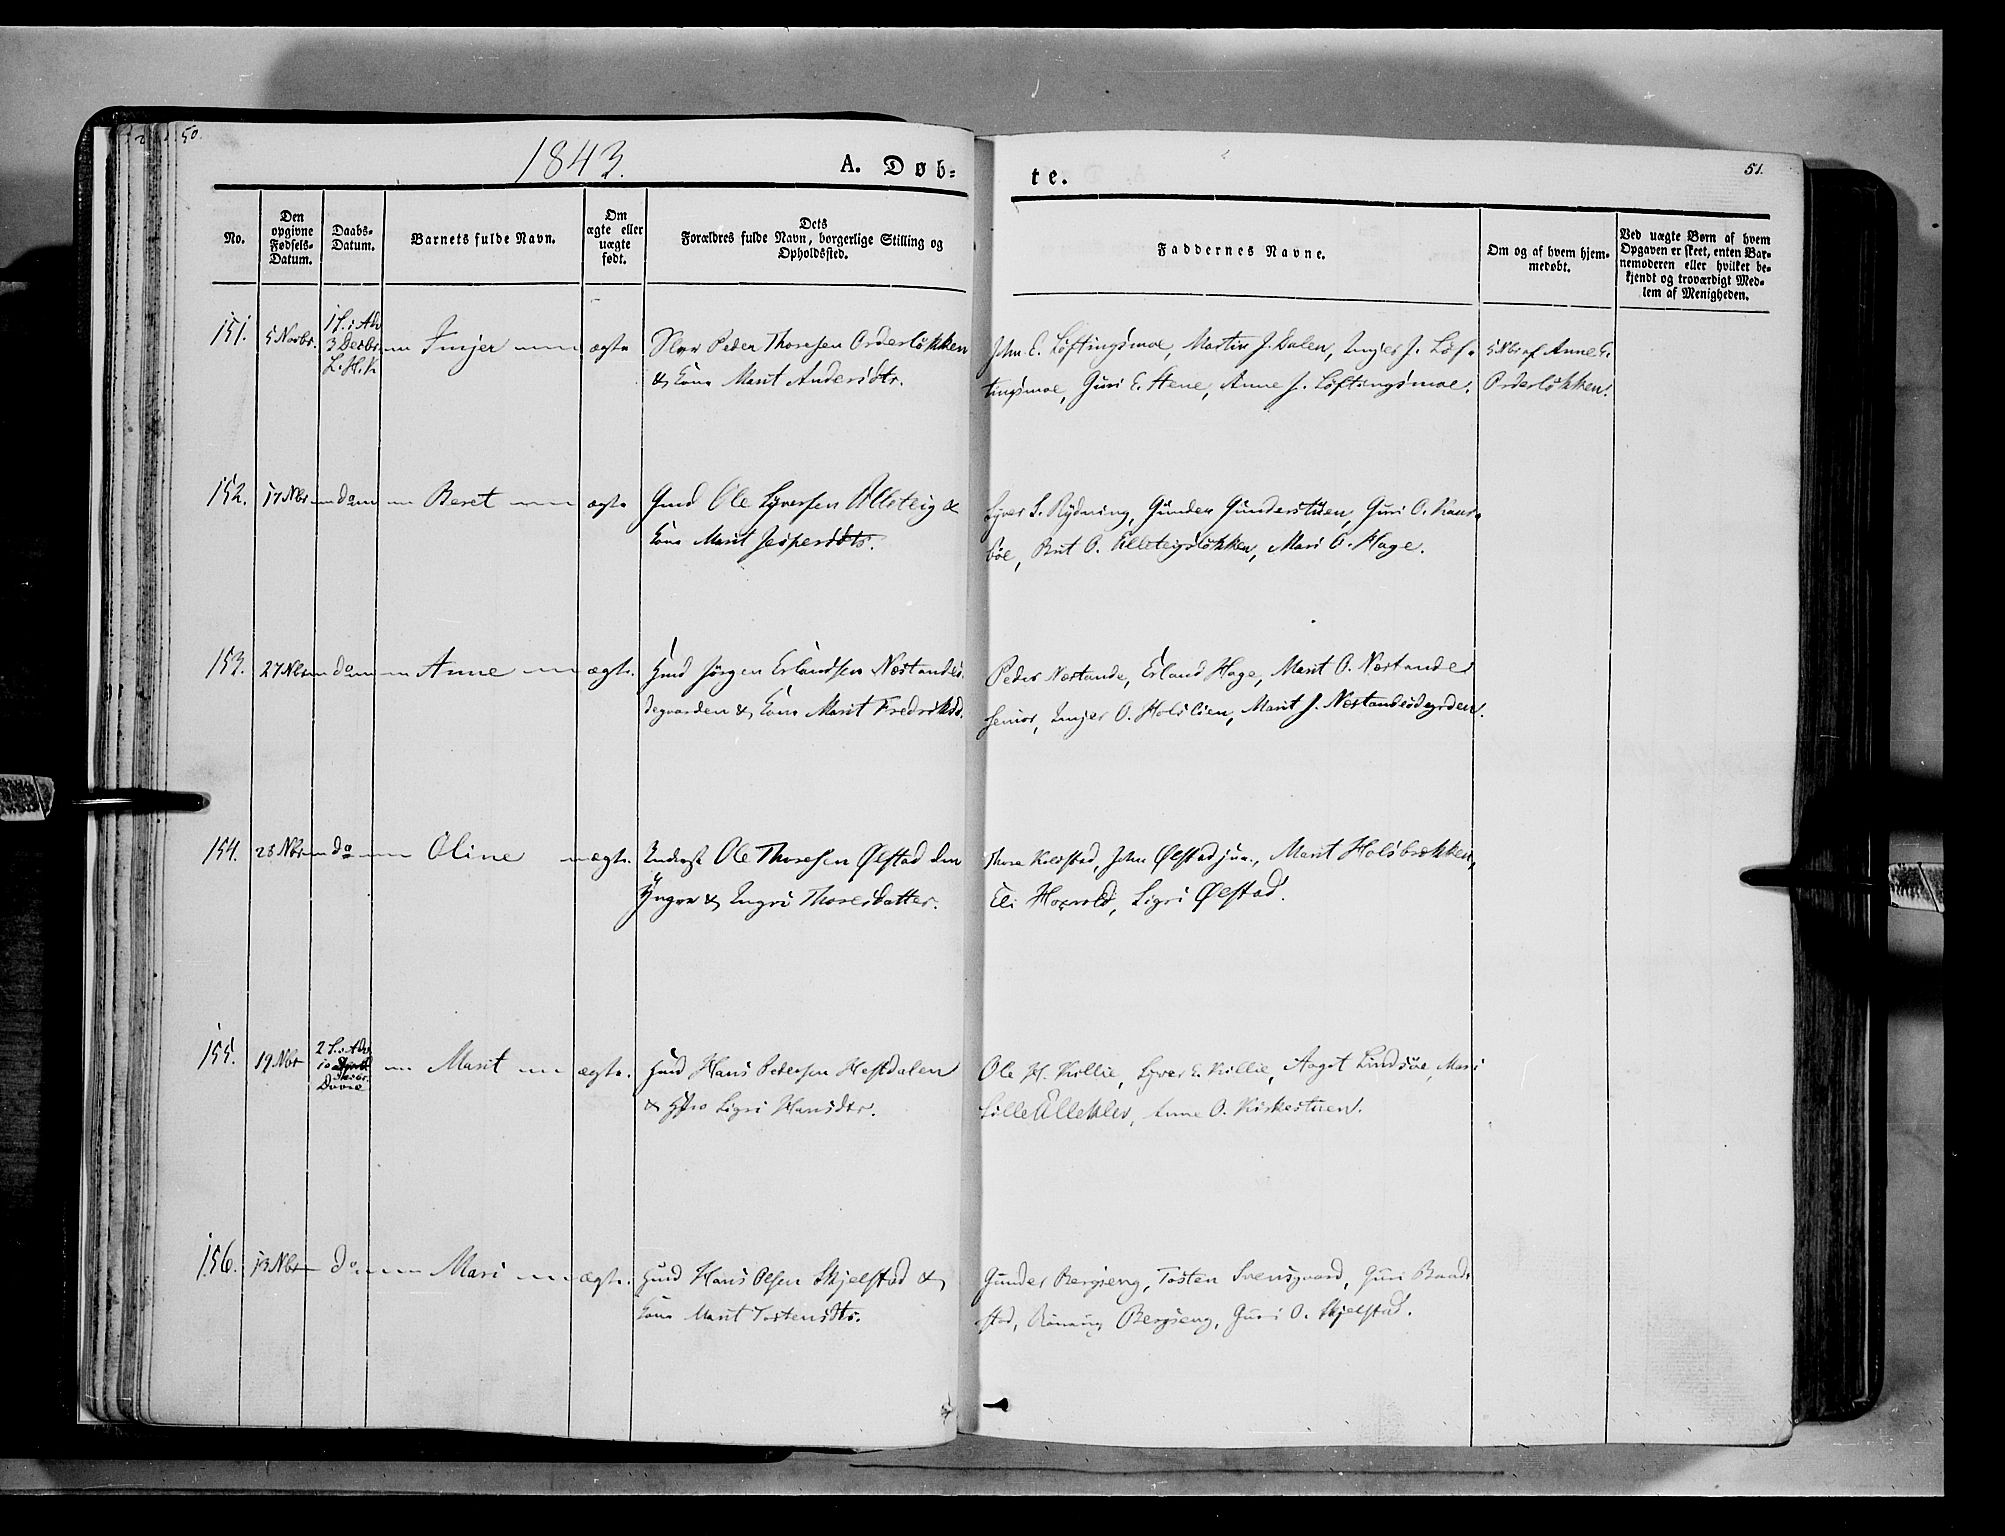 50.
1843.
A. Døb-
te.
51.
No.
Den
opgivne
Fødsels-
Datum.
Daabs-
Datum.
Barnets fulde Navn.
Om
ægte eller
uægte
født.
Dets
Forældres fulde Navn, borgerlige Stilling og
Opholdssted.
Faddernes Navne.
Om og af hvem hjem-
medøbt.
Ved uægte Børn af hvem
Opgaven er skeet, enten Bar-
nemoderen eller hvilket be-
kjendt og troværdigt Med-
lem af Menigheden.
151.
5 Novbr.
1 S. i Adv
3 Decbr
L.H.K
Imjer
ægte
Peder Thoresen Orderløkken
& Kone Marit Andersdtr.
John E. Løftingsmoe, Martin J. Dalen, Imjer J. Løf-
tingsmoe, Guri E. Stene, Anne J. Løftingsmoe.
5 Nbr af Anne E.
Orderløkken.
152.
17 Nbr
do
Beret
ægte
Gmd Ole Syversen Ulsteig &
Kone Marit Jespersdtr.
Syver S. Rydning, Gunder Gunderstuen, Guri O.
Brit O. Mari O. Hage.
153.
27 Nbr
do
Anne
ægte.
Hmd Jørgen Erlandsen Næstandes
degaarden & Kone Marit Fredriksd.
Peder Næstande, Erland Hage, Marit O. Næstande
senior, Imjer O. Holslien, Marit J. Næstandsødegrden.
154.
28 Nbr
do
Oline
ægte.
Inderst Ole Thoresen Ølstad den
Yngre & Ingri Thoresdatter.
Thore Kolostad, John Ølstad jun., Marit Holsbrækken,
Eli Sigri Ølstad.
155.
19 Nbr
2 S. i Adv
10
Decbr.
Dovre
Marit
ægte.
Hmd Hans Pedersen Hestdalen
& Hstro Sigri Hansdtr.
Ole H. Killie, Syver E. Killie, Aaget Lindsøe, Mari
Lille Ulleklev, Anne O. Kirkestuen.
156.
13 Nbr
do
Mari
ægte.
Hmd Hans Olsen Skjelstad &
Kone Marit Tostensdtr.
Gunder Bergseng, Tosten Svensgaard, Guri Baad-
stad, Rønnaug Bergseng, Guri O. Skjelstad.